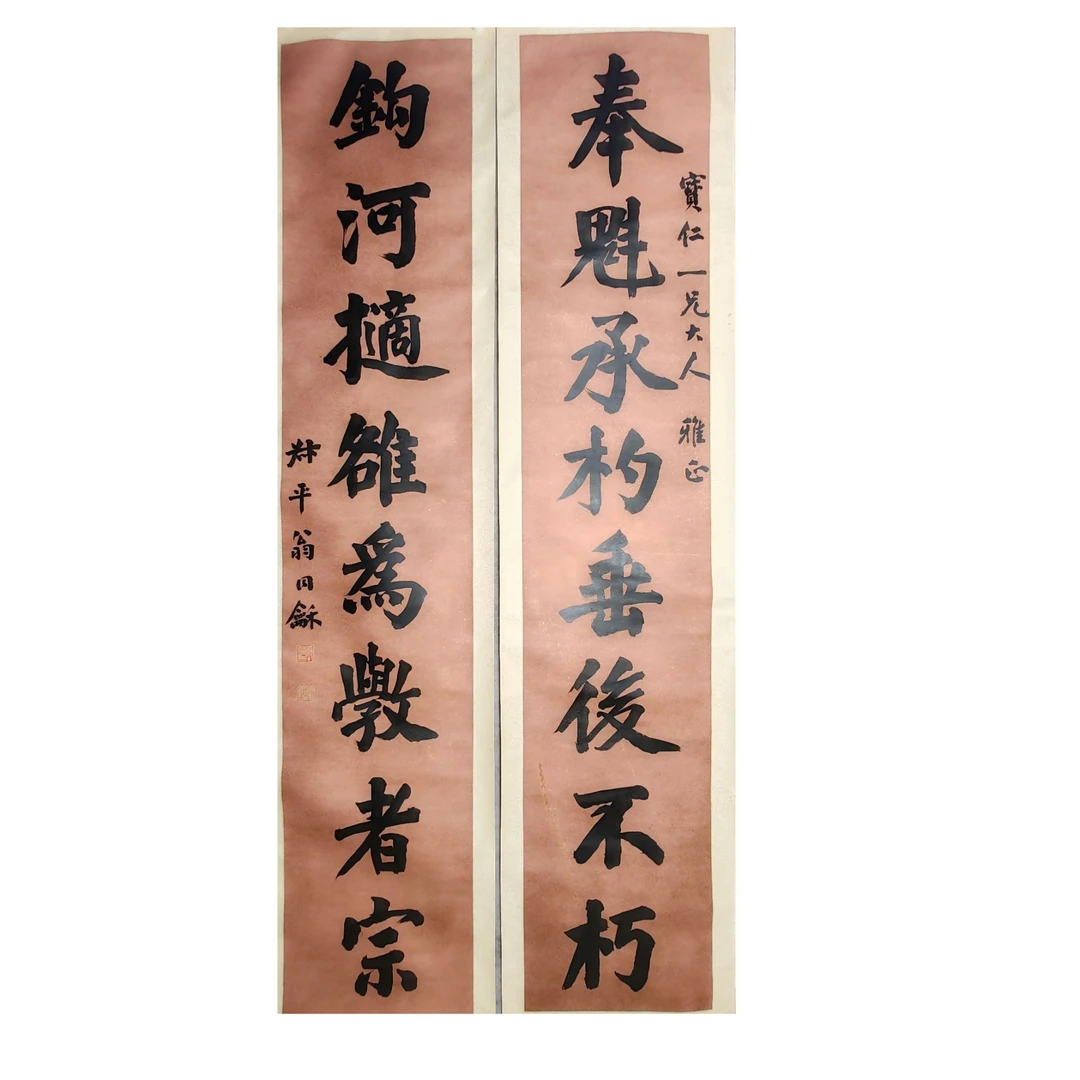 寶仁一兄大人 雅正
奉魁承杓垂後不朽
鉤河擿雒爲斆者宗
叔平翁同龢